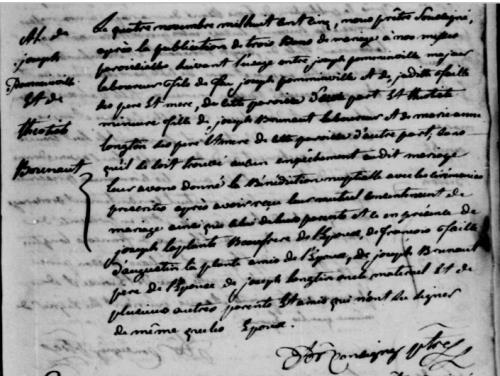 M. de
joseph
pomminville
Et de
theotist
Brunaut
Le quatre novembre mil huit cent cinq, nous prêtre Soussigné,
après la publication de trois bans de mariage à nos messes
paroissiales suivant l'usage entre joseph pomminville majeur
laboureur fils de feu joseph pomminville Et de judith
ses pere Et mere, de cette paroisse d'une part Et theotist
mineure fille de joseph Brunaut laboureur Et de marie anne
longtin ses pere Et mere de cette paroisse d'autre part, sans
qu'il se soit trouvé aucun empêchement au dit mariage
leur avons donné la Bénédiction nuptiale avec les cérémonies
prescrites après avoir reçu leur mutuel consentement de
mariage ainsi que celui de leurs parents et ce en présence de
joseph laplante Beaufrere de l'Epoux, de francois
d'augustin la plante amis de l'Epoux, de joseph Brunaut
pere de l'Epouse de joseph longtin oncle maternel Et de
plusieurs autres parents Et amis qui n'ont su signer
de même que les Epoux.
ptre